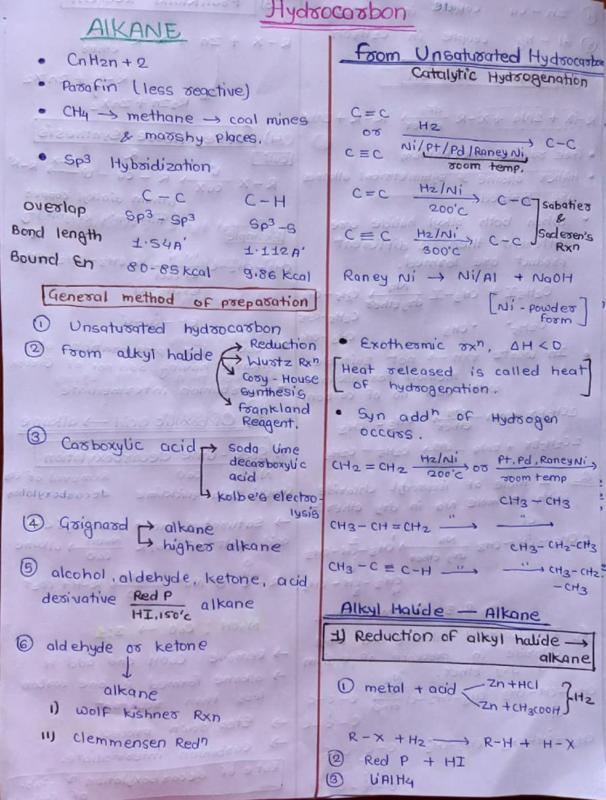 Hydrocarbon
ALKANE
• CnH2n+2
• Parafin (less reactive)
• CH4 → methane → coal mines
& marshy places.
• Sp³ Hybridization
C – C    C – H
overlap    Sp³ – Sp³    Sp³ – S
Bond length    1.54A°    1.112A°
Bound En    80-85 kcal    9.86 kcal
General method of preparation
① Unsaturated hydrocarbon
② from alkyl halide → Reduction
→ Wurtz Rxⁿ
→ Cory-House
Synthesis
→ Frankland
Reagent.
③ Carboxylic acid → soda lime
decarboxylic
acid
→ kolbe's electro-
lysis
④ Grignard → alkane
→ higher alkane
⑤ alcohol, aldehyde, ketone, acid
derivative Red P / HI, 150°c alkane
⑥ aldehyde or ketone
↓
alkane
i) Wolf kishner Rxn
ii) Clemmensen Redⁿ
from Unsaturated Hydrocarbon
Catalytic Hydrogenation
C = C
or    H2 / Ni/Pt/Pd/Raney Ni, → C-C
C ≡ C    room temp.
C = C    H2/Ni → 200°c    C-C
Sabatier
&
Saderen's
Rxn
C ≡ C    H2/Ni → 300°c    C-C
Raney Ni → Ni/Al + NaOH
[Ni-powder
form]
• Exothermic rxⁿ, ΔH < 0
[Heat released is called heat
of hydrogenation.]
• Syn addⁿ of Hydrogen
occurs.
CH2 = CH2 H2/Ni → 200°c or Pt, Pd, Raney Ni → room temp
CH3 – CH3
CH3 – CH = CH2 " → " →
CH3 – CH2 – CH3
CH3 – C ≡ C – H " → " → CH3 – CH2
– CH3
Alkyl Halide — Alkane
1) Reduction of alkyl halide →
alkane
① metal + acid Zn + HCl
Zn + CH3COOH } H2
R – X + H2 → R-H + H-X
② Red P + HI
③ LiAlH4